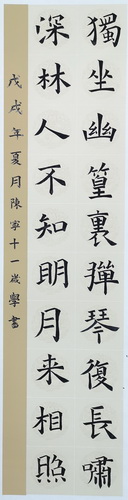 獨坐幽篁裏彈琴復長嘯
深林人不知明月来相照
戊戌年夏月陳寧十一歲學書